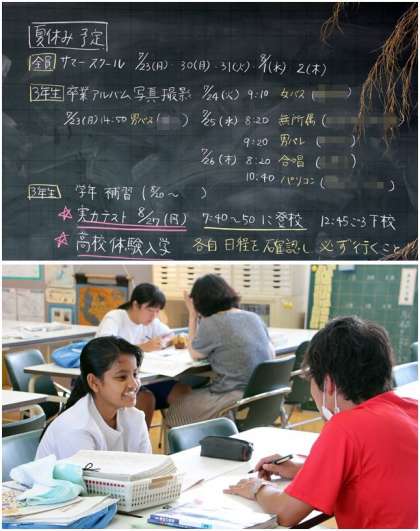 夏休み 予定
全員 サマースクール 7/23(月)・30(月)・31(火)・8/1(水)・2(木)
3年生 卒業アルバム写真撮影 7/24(火) 9:10 女バス(
7/23(月)14:50 男バス( ) 7/25(水) 8:20 無所属(
9:20 男バレ(
7/26(木) 8:20 合唱(
10:40 パソコン(
3年生 学年補習(8/20〜 )
☆ 実力テスト 8/27(月) 7:40〜50に登校 12:45ごろ下校
☆ 高校体験入学 各自日程を確認し必ず行くこと